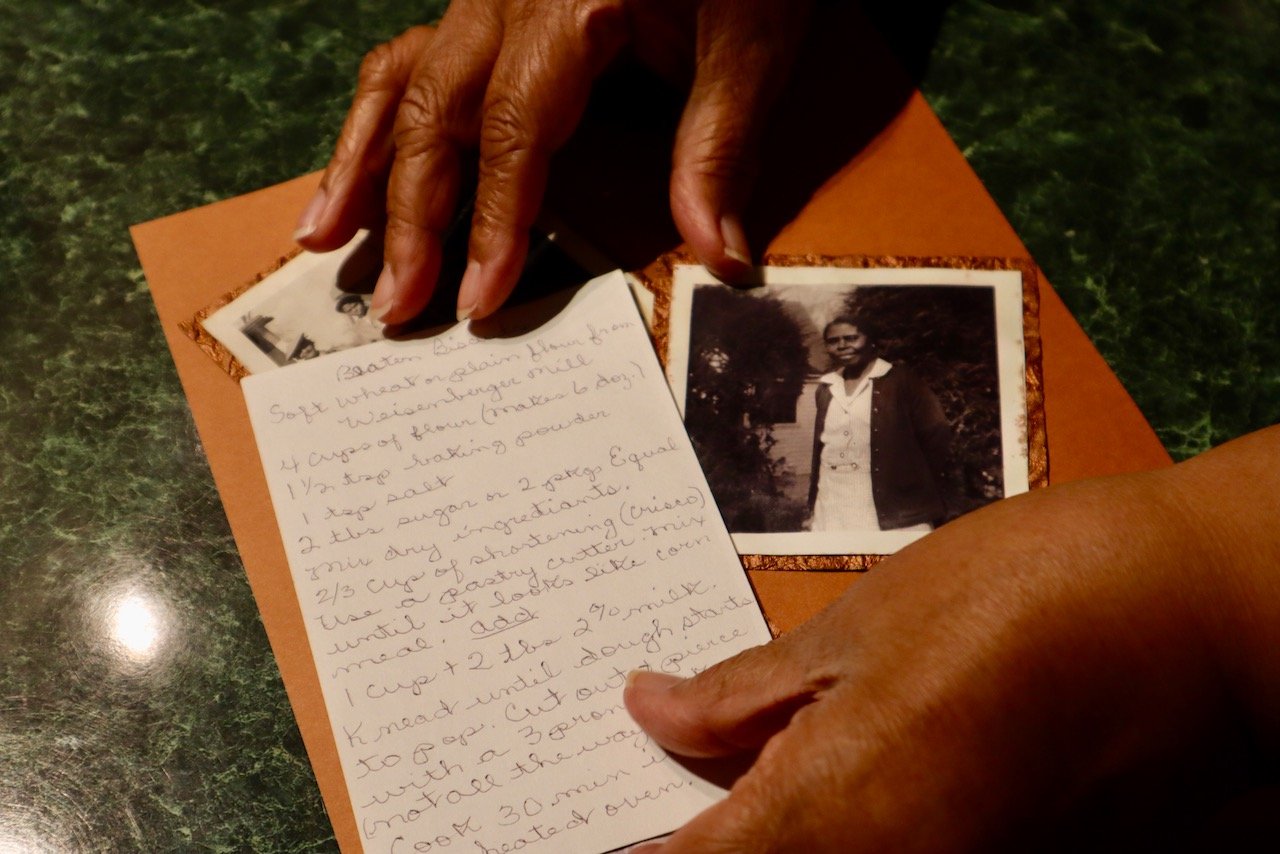 Beaten Bisc
Soft wheat or plain flour from
Weisenberger Mill
4 cups of flour (makes 6 doz.)
1 1/2 tsp baking powder
1 tsp salt
2 tbs sugar or 2 pkgs Equal
Mix dry ingrediants.
2/3 cup of shortening (Crisco)
Use a pastry cutter. Mix
until it looks like corn
meal. add
1 cup + 2 tbs 2% milk.
Knead until dough starts
to pop. Cut out & pierce
with a 3 pron
(not all the way
Cook 30 min i
heated oven.